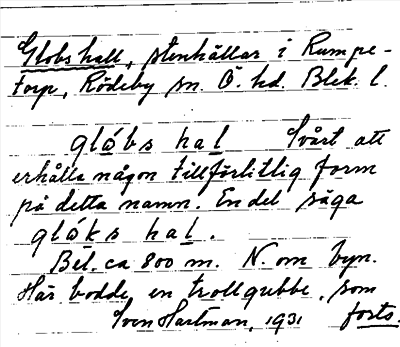 Globs hall, stenhällar i Rumpe-
torp, Rödeby sn. Ö. hd. Blek. l.
glåbs hal Svårt att
erhålla någon tillförlitlig form
på detta namn. En del säga
glåks hal.
Bel. ca 800 m. N. om byn.
Här bodde en trollgubbe, som
Sven Hartman, 1931 forts.